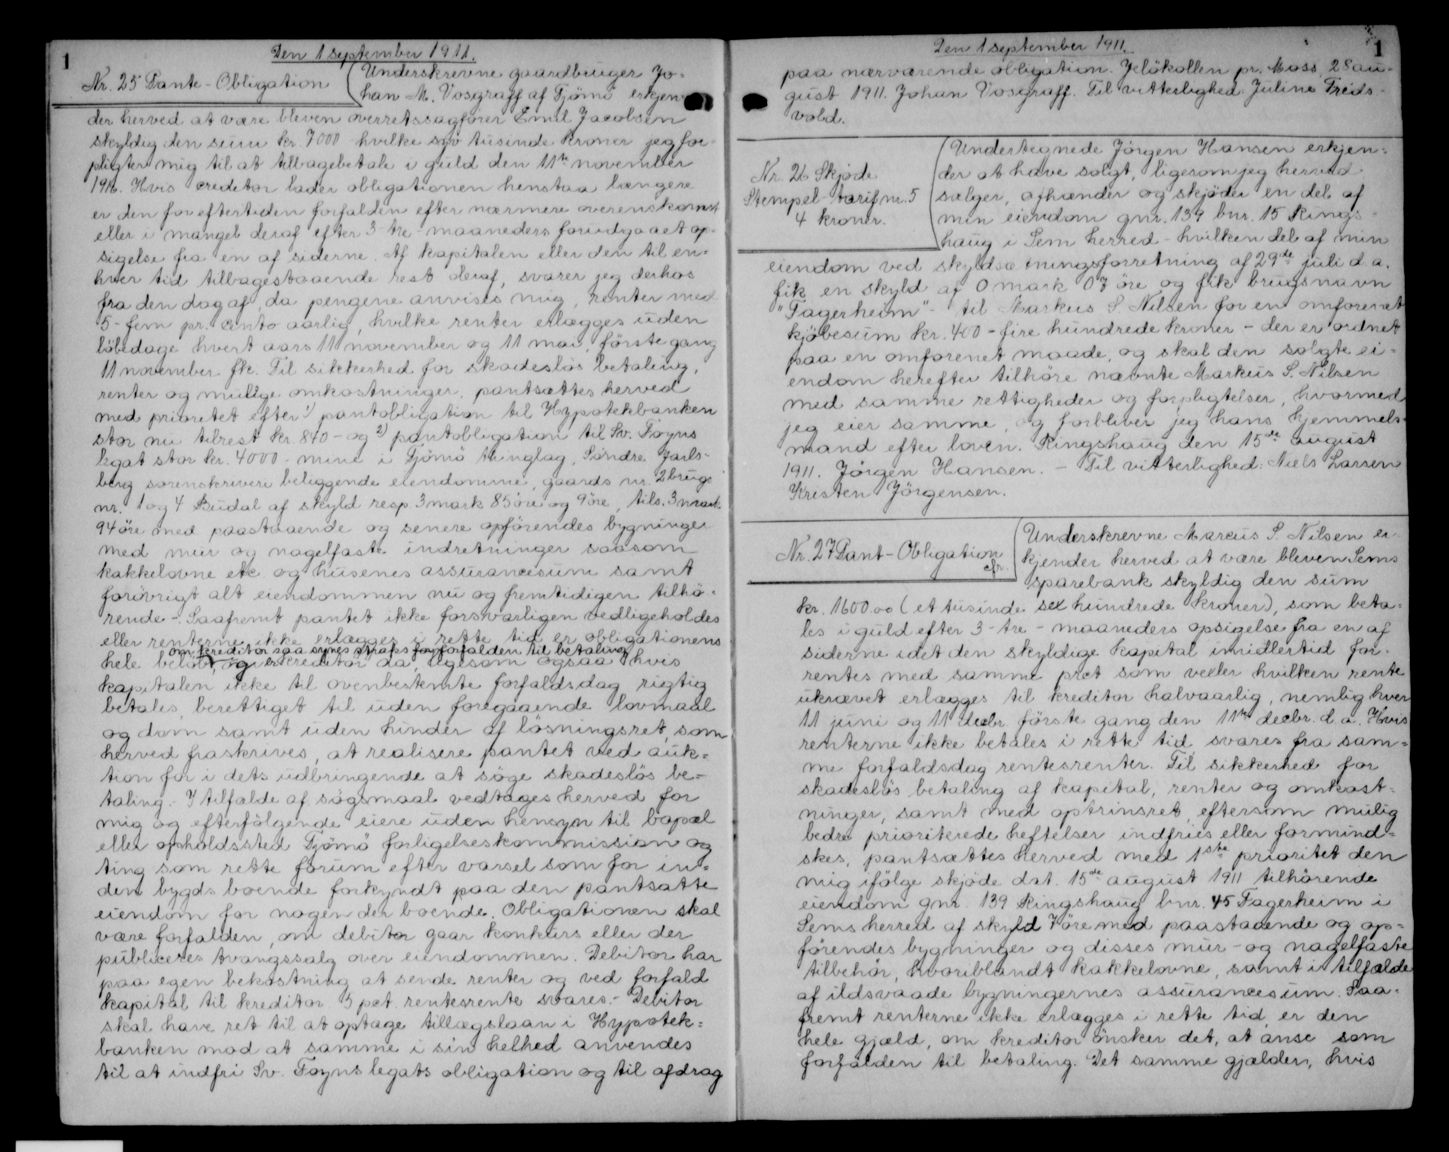 1
Den 1 september 1911.
Nr. 25 Pante-Obligation
Underskrevne gaardbruger Jo-
han M. Vosgraff af Tjömö erkjen
der herved at være bleven overretssagförer Emil Jacobsen
skyldig den sum kr. 7000 hvilke syv tusinde kroner jeg for-
pligter mig til at tilbagebetale i guld den 11te november
1916. Hvis creditor lader obligationen henstaa længere
er den for eftertiden forfalden efter nærmere overenskomst
eller i mangel deraf efter 3-tre-maaneders forudgaaet op-
sigelse fra en af siderne. Af kapitalen eller den til en-
hver tid tilbagestaaende rest deraf, svarer jeg derhos
fra den dag af da pengene anvises mig, renter med
5-fem pr. cento aarlig, hvilke renter erlægges uden
löbedage hvert aars 11 november og 11 mai, förste gang
11 november fk. Til sikkerhed for skadeslös betaling,
renter og mulige omkostninger, pantsættes herved
med prioritet efter 1) pantobligation til Hypotekbanken
stor nu tilrest kr. 840- og 2) pantobligation til Sv. Foyns
legat stor kr. 4000- mine i Tjömö thinglag, Söndre Jarls-
berg sorenskriveri beliggende eiendomme, gaards nr. 2 brugs
nr. 1 og 4 Budal af skyld resp. 3 mark 85 öre og 9 öre, tils. 3 mark
94 öre med paastaaende og senere opförendes bygninger
med mur og nagelfaste indretninger saasom
kakkelovne etc og husenes assurancesum samt
forövrigt alt eiendommen nu og fremtidigen tilhö-
rende. Saafremt pantet ikke forsvarligen vedligeholdes
eller renterne ikke erlægges i rette tid er obligationens
om kreditor saa synes straks forfalden til betaling
hele belöb, og er kreditor da, ligesom ogsaa hvis
kapitalen ikke til ovenbestemte forfaldsdag rigtig
betales, berettiget til uden foregaaende lovmaal
og dom samt uden hinder af lösningsret, som
herved fraskrives, at realisere pantet ved auk-
tion for i dets udbringende at söge skadeslös be-
taling. I tilfælde af sögsmaal vedtages herved for
mig og efterfölgende eiere uden hensyn til bopæl
eller opholdssted Tjömö forligelseskommission og
ting som rette forum efter varsel som for in-
den bygds boende forkyndt paa den pantsatte
eiendom for nogen der boende. Obligationen skal
være forfalden, om debitor gaar konkurs eller der
publiceres tvangssalg over eiendommen. Debitor har
paa egen bekostning at sende renter og ved forfald
kapital til kreditor 5 pct rentesrente svares.- Debitor
skal have ret til at optage tillægslaan i Hypotek-
banken mod at samme i sin helhed anvendes
til at indfri Sv. Foyns legats obligation og til afdrag
1
Den 1 september 1911.
paa nærværende obligation. Jelökollen pr. Moss 28 au-
gust 1911. Johan Vosgraff. Til vitterlighed Juline Freds-
vold.
Nr. 26 Skjøde
Stempel tarifnr. 5
4 kroner.
Undertegnede Jörgen Hansen erkjen-
der at have solgt, ligesom jeg herved
sælger, afhænder og skjöder en del af
min eiendom gnr. 139 bnr. 15 Rings-
haug i Sem herred - hvilken del af min
eiendom ved skyldsætningsforretning af 29de juli d.a.
fik en skyld af 0 mark 07 öre og fik brugsnavn
"Fagerheim" - til Markus S. Nilsen for en omforenet
kjöbesum kr. 400 - fire hundrede kroner - der er ordnet
paa en omforenet maade, og skal den solgte ei-
endom herefter tilhöre nævnte Markus S. Nilsen
med samme rettigheder og forpligtelser, hvormed
jeg eier samme, og forbliver jeg hans hjemmels-
mand efter loven. Ringshaug den 15de august
1911. Jörgen Hansen. - Til vitterlighed: Niels Larsen
Kristen Jörgensen.
Nr. 27 Pant-Obligation
cfr.
Underskrevne Marcus S. Nilsen er
kjender herved at være bleven Sems
sparebank skyldig den sum
kr. 1600.00 (et tusinde sex hundrede kroner), som beta-
les i guld efter 3-tre-maaneders opsigelse fra en af
siderne idet den skyldige kapital imidlertid for-
rentes med samme pct som veller hvilken rente
ukrævet erlægges til kreditor halvaarlig, nemlig hver
11 juni og 11 decbr. förste gang den 11te decbr. d.a. Hvis
renterne ikke betales i rette tid svares fra sam-
me forfaldsdag rentesrenter. Til sikkerhed for
skadeslös betaling af kapital, renter og omkost-
ninger, samt med optrinsret, eftersom mulig
bedre prioriterede heftelser indfries eller formind-
skes, pantsættes herved med 1ste prioritet den
mig ifölge skjöde dat. 15de august 1911 tilhörende
eiendom gnr. 139 Ringshaug bnr. 45 Fagerheim i
Sems herred af skyld 7 öre med paastaaende og op-
förendes bygninger og disses mur- og nagelfaste
tilbehör, hvoriblandt kakkelovne, samt i tilfælde
af ildsvaade bygningernes assurancesum. Saa-
fremt renterne ikke erlægges i rette tid, er den
hele gjæld, om kreditor önsker det, at anse som
forfalden til betaling. Det samme gjælder, hvis